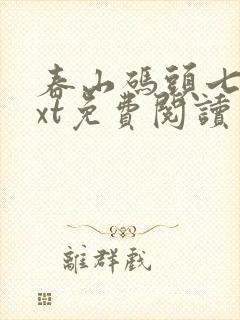 春山碼頭七
xt免費閱讀
離群戲